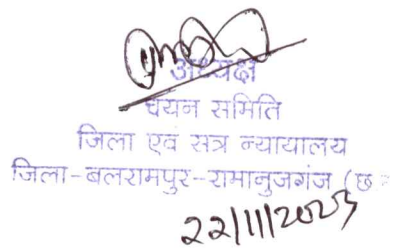 अध्यक्ष
चयन समिति
जिला एवं सत्र न्यायालय
जिला-बलरामपुर-रामानुजगंज (छ
22/11/2023